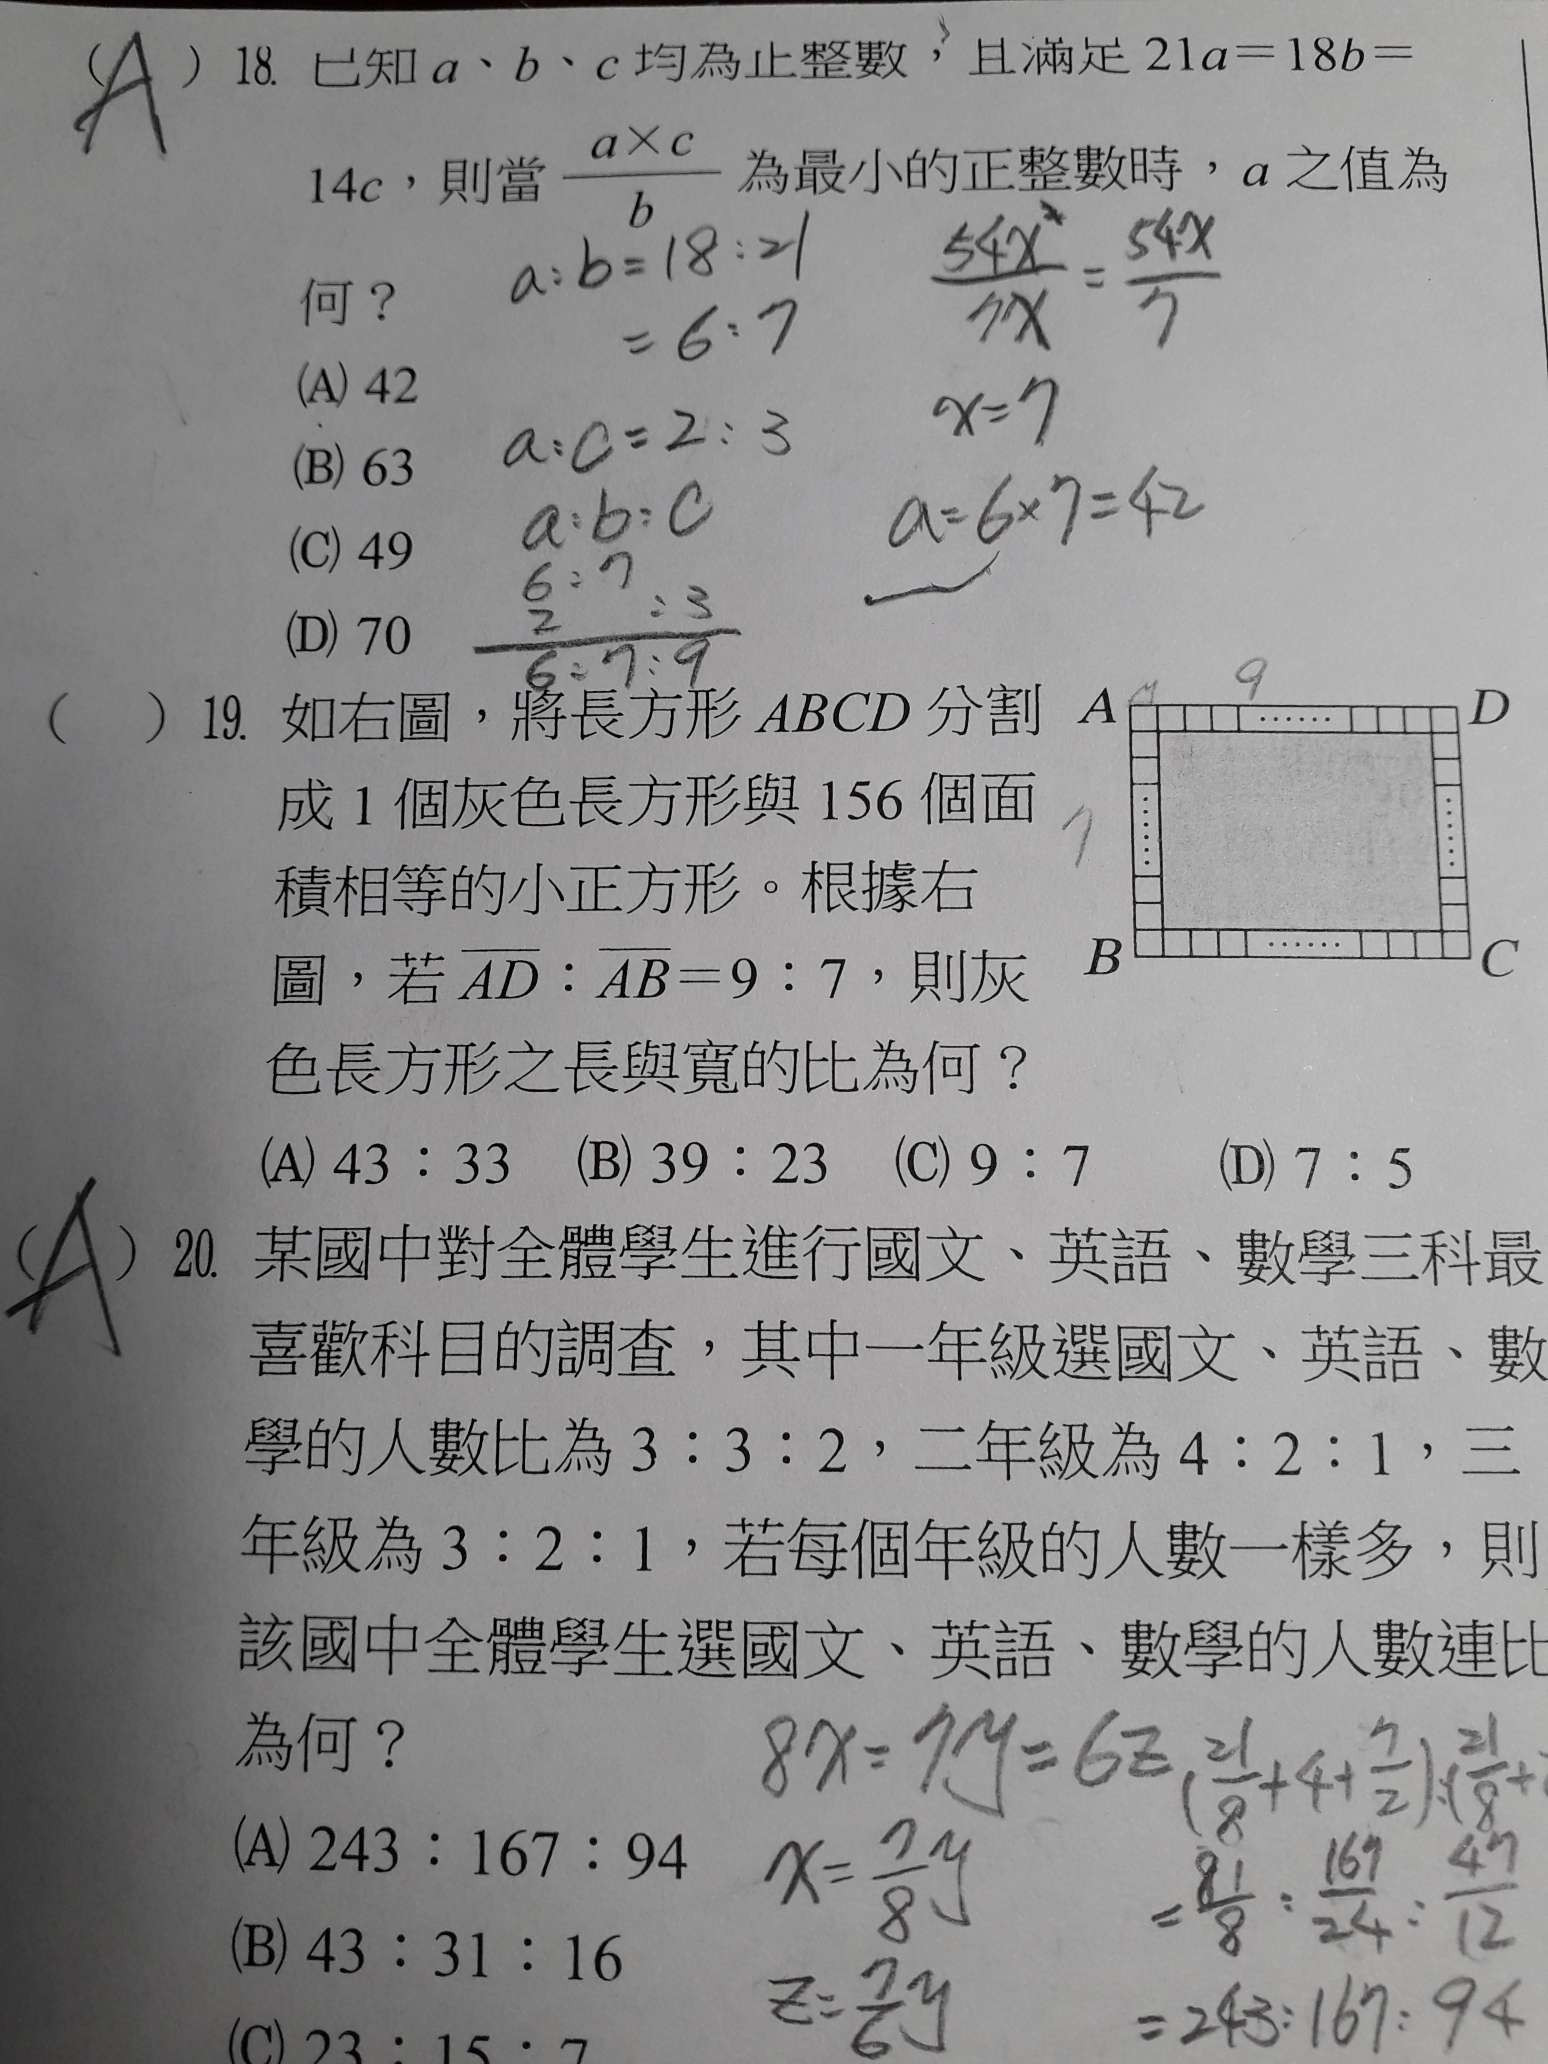 (A) 18. 已知 a、b、c 均為正整數，且滿足 21a＝18b＝
14c，則當 a×c/b 為最小的正整數時，a 之值為
何？
a:b=18:21
=6:7
54x²/7x = 54x/7
(A) 42
x=7
(B) 63
a:c=2:3
a:b:c
a=6×7=42
(C) 49
6:7
2 :3
(D) 70
6:7:9
( ) 19. 如右圖，將長方形 ABCD 分割
成 1 個灰色長方形與 156 個面
積相等的小正方形。根據右
圖，若 AD：AB＝9：7，則灰
色長方形之長與寬的比為何？
A 9 D
7
B C
(A) 43：33 (B) 39：23 (C) 9：7 (D) 7：5
(A) 20. 某國中對全體學生進行國文、英語、數學三科最
喜歡科目的調查，其中一年級選國文、英語、數
學的人數比為 3：3：2，二年級為 4：2：1，三
年級為 3：2：1，若每個年級的人數一樣多，則
該國中全體學生選國文、英語、數學的人數連比
為何？
8x=7y=6z
(21/8+4+7/2):(21/8+
(A) 243：167：94
x=7/8y
=81/8:167/24:47/12
(B) 43：31：16
z=7/6y
=243:167:94
(C) 23：15：7